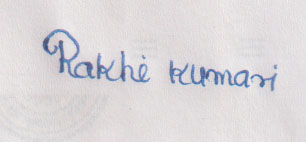 Rakhi kumari